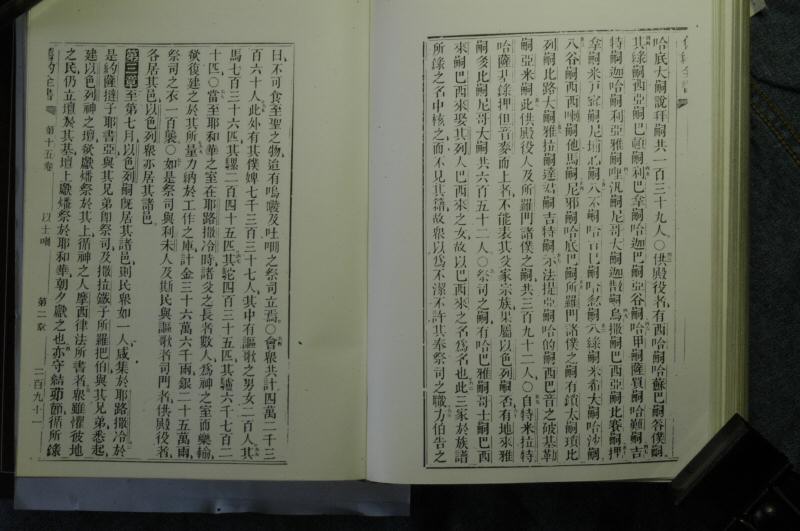 哈底大嗣說拜嗣共一百三十九人○供殿役者有西哈嗣哈蘇巴嗣答僕嗣
其綠嗣西亞嗣巴頓嗣利巴拿嗣哈迦巴嗣亞谷嗣哈甲嗣薩買嗣哈難嗣吉
特嗣迦哈嗣利亞雅嗣哩汛嗣尼哥大嗣迦散嗣烏撒嗣巴西亞嗣比賽嗣押
拿嗣米戶寗嗣尼普心嗣八卜嗣哈古巴嗣哈忽嗣八綠嗣米希大嗣哈沙嗣
八谷嗣西西喇嗣他馬嗣尼邪嗣哈底巴嗣所羅門諸僕之嗣有鎖太嗣瑣比
列嗣比路大嗣雅拉嗣達君嗣吉特嗣示法提亞嗣哈的嗣西巴音之破基勒
嗣亞米嗣此供殿役人及所羅門諸僕之嗣共三百九十二人○自特米拉特
哈薩基綠押但音麥而上者不能表其父家宗族果屬以色列嗣否有地來雅
嗣多比嗣尼哥大嗣共六百五十二人○祭司之嗣有哈巴雅嗣哥士嗣巴西
來嗣巴西來娶其列人巴西來之女故以巴西來之名爲名也此三家於族譜
所錄之名中核之而不見其籍故衆以爲不潔不許其奉祭司之職方伯告之
曰不可食至聖之物迨有嗚𠾐及吐吀之祭司立焉○會衆共計四萬二千三
百六十人此外有其僕婢七千三百三十七人其中有謳歌之男女二百人其
馬七百三十六匹其騾二百四十五匹其駝四百三十五匹其驢六千七百二
十匹○當至耶和華之室在耶路撒冷時諸父之長者數人爲神之室而樂輸
欲復建之於其所量力納於工作之庫計金三十六萬六千兩銀二十五萬兩
祭司之衣一百襲○如是祭司與利未人及斯民與謳歌者司門者供殿役者
各居其邑以色列衆亦居其諸邑
第三章至第七月以色列嗣旣居其諸邑則民衆如一人咸集於耶路撒冷於
是約薩撻子耶書亞與其兄弟卽祭司及撒拉鐵子所羅把伯與其兄弟悉起
建以色列神之壇欲獻燔祭於其上循神之人摩西律法所書者衆雖懼彼地
之民仍立壇於其基壇上獻燔祭於耶和華朝夕獻之也亦守結茆節循所錄
舊約全書 第十五卷 以士喇 第二章 二百九十一